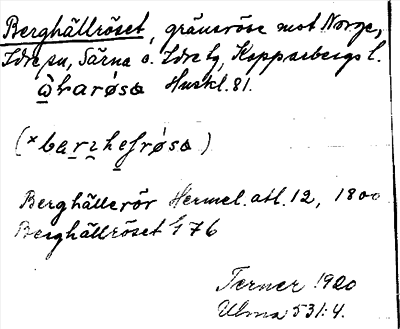 Berghällröset, gränsröse mot Norge,
Idre sn, Särna o. Idre tg, Kopparbergs l.
Huskl. 81.
Berghällerör Hermel. atl. 12, 1800
Berghällröset G 76
Terner 1920
Ulma 531:4.